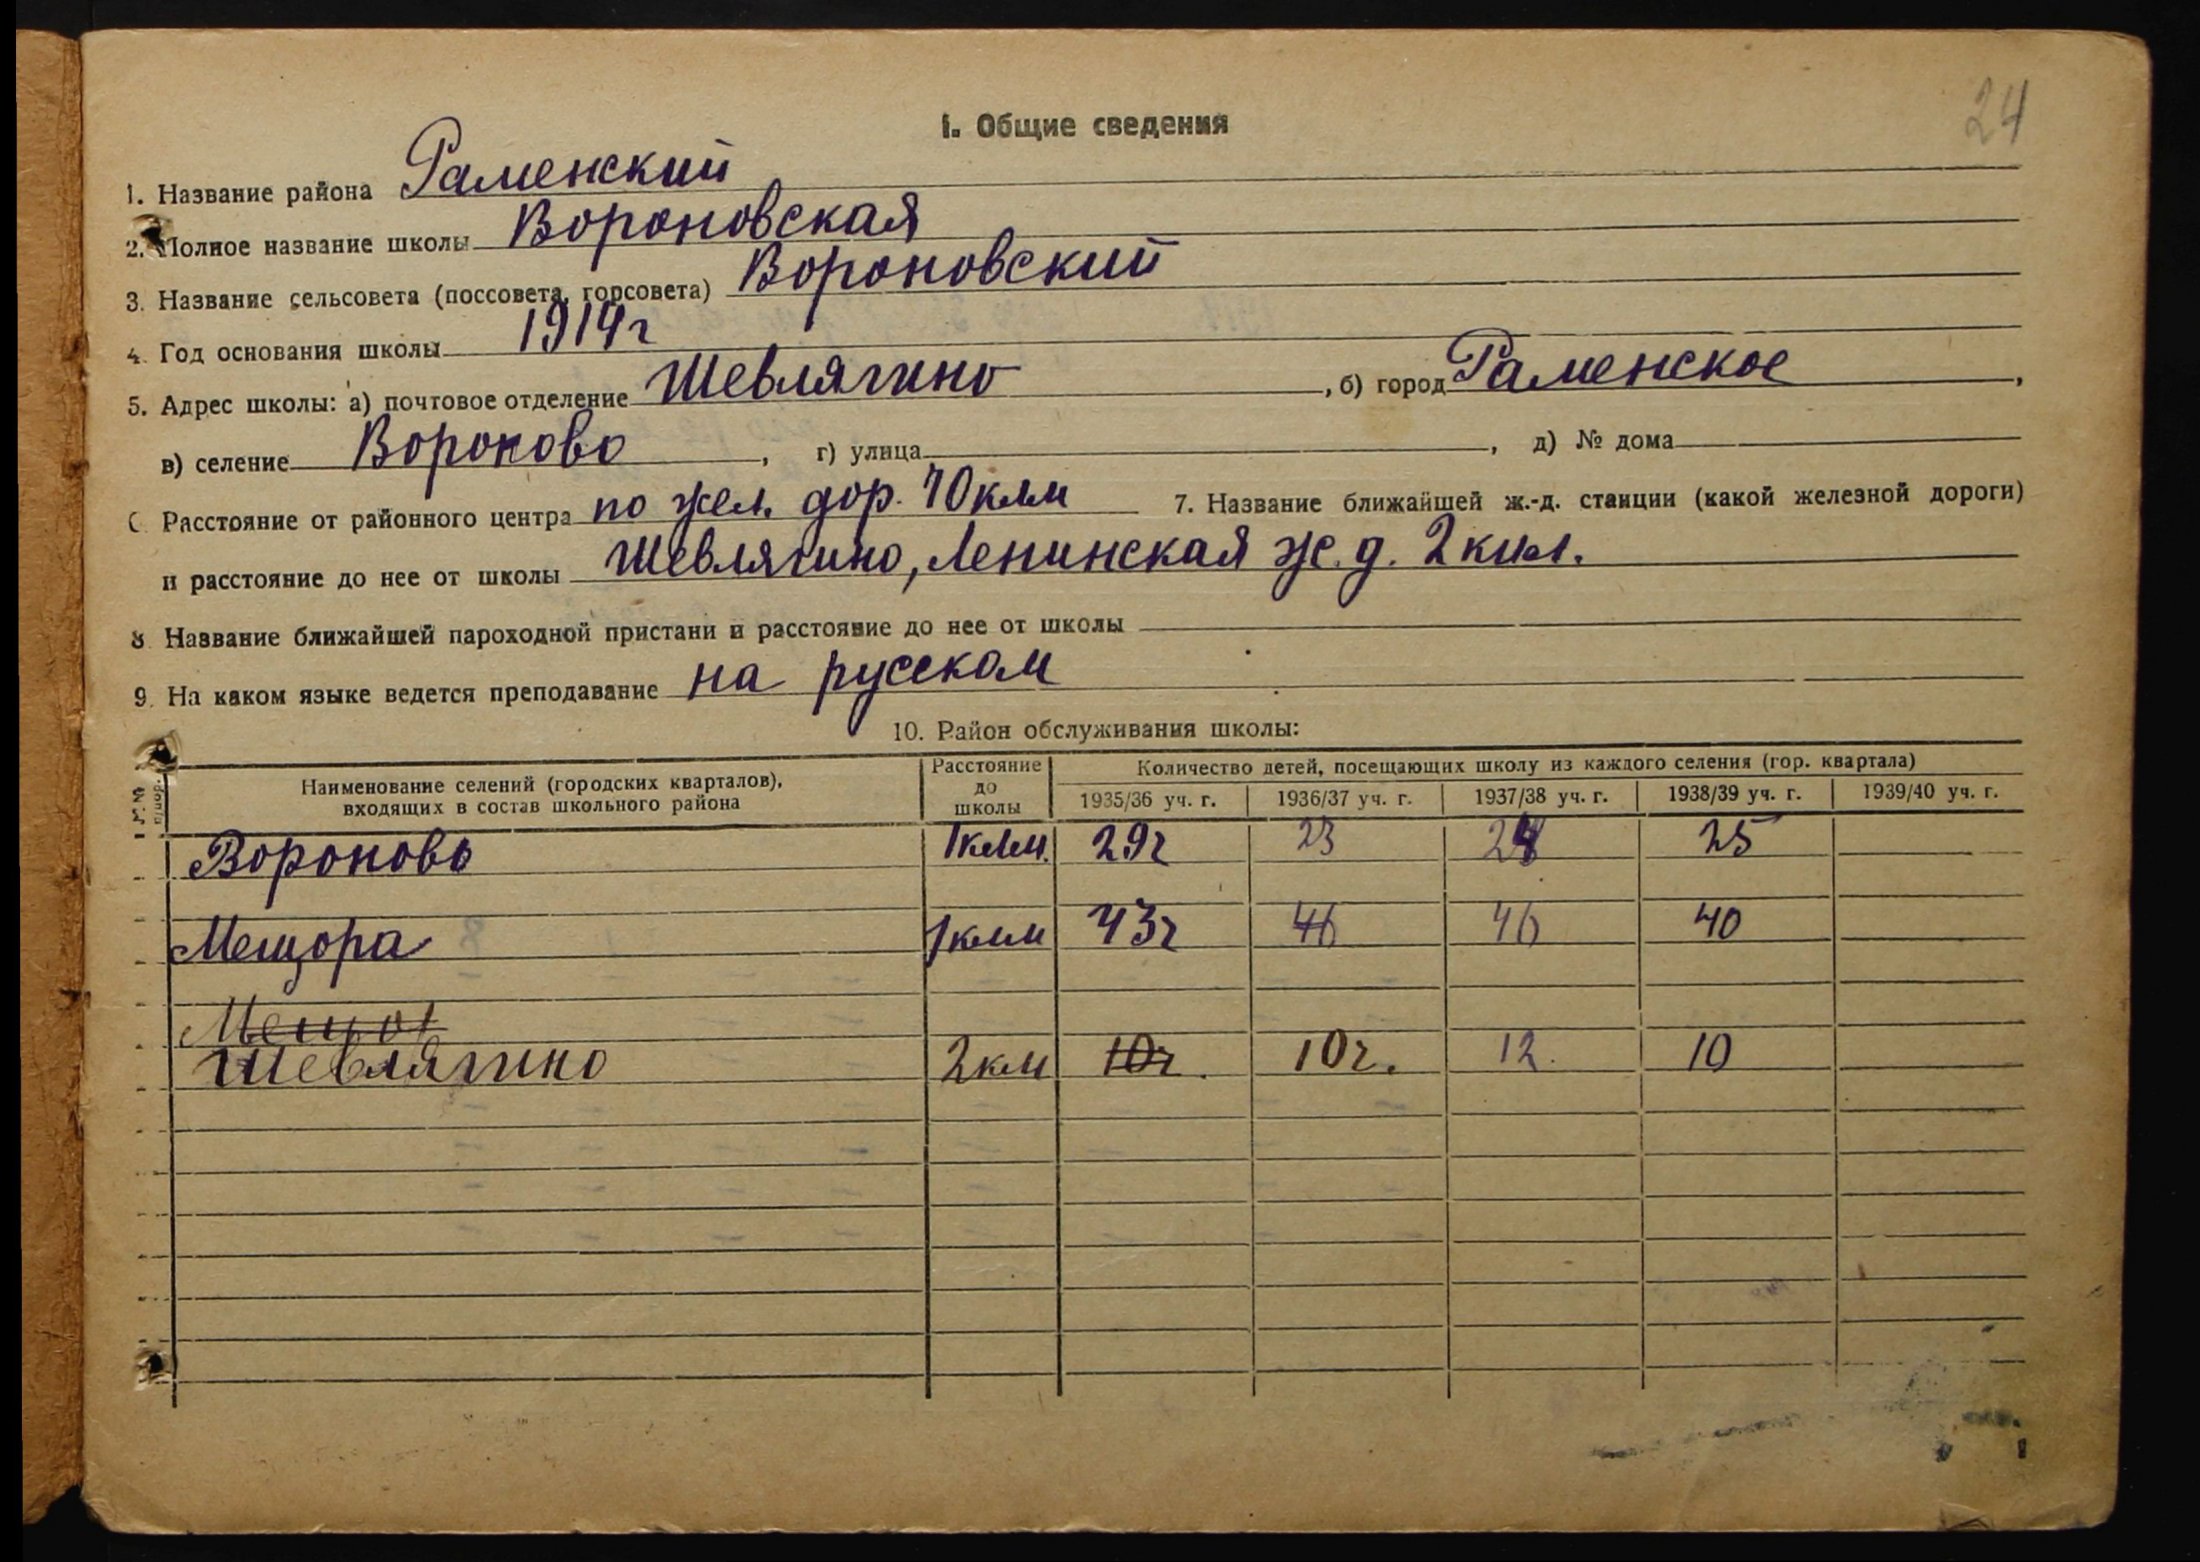 24
I. Общие сведения
1. Название района Раменский
2. Полное название школы Вороновская
3. Название сельсовета (поссовета, горсовета) Вороновский
4. Год основания школы 1914г
5. Адрес школы: а) почтовое отделение Шевлягино, б) город Раменское,
в) селение Вороново, г) улица, д) № дома
Расстояние от районного центра по жел. дор. 10клм 7. Название ближайшей ж.-д. станции (какой железной дороги)
и расстояние до нее от школы Шевлягино, Ленинская ж.д. 2клм.
8. Название ближайшей пароходной пристани и расстояние до нее от школы
9. На каком языке ведется преподавание на русском
10. Район обслуживания школы:
№№ п/пор. Наименование селений (городских кварталов), входящих в состав школьного района Расстояние до школы Количество детей, посещающих школу из каждого селения (гор. квартала)
1935/36 уч. г. 1936/37 уч. г. 1937/38 уч. г. 1938/39 уч. г. 1939/40 уч. г.
Вороново 1клм. 29г 23 25
Мещора 1клм 43г 46 46 40
Мещо
Шевлягино 2км 10г. 10г. 12. 10